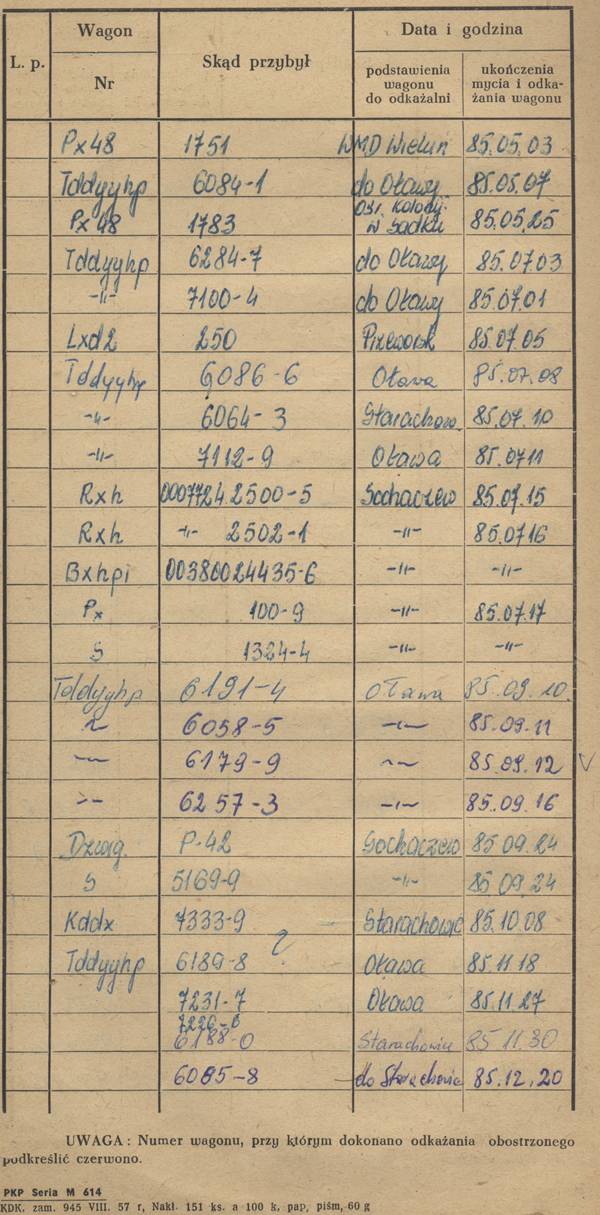 L. p. Wagon Nr Skąd przybył Data i godzina
podstawienia wagonu do odkażalni ukończenia mycia i odka-żania wagonu
Px48 1751 WMD Wieluń 85.05.03
Tddyyhp 6084-1 do Oławy 85.05.07
Px 48 1783 w Sadku 85.05.25
Tddyyhp 6284-7 do Oławy 85.07.03
-"- 7100-4 do Oławy 85.07.01
Lxd2 250 Przeworsk 85.07.05
Tddyyhp 6086-6 Oława 85.07.08
-"- 6064-3 Starachow. 85.07.10
-"- 7112-9 Oława 85.07.11
Rxh 00077242500-5 Sochaczew 85.07.15
Rxh -"- 2502-1 -"- 85.07.16
Bxhpi 00380024435-6 -"- -"-
Px 100-9 -"- 85.07.17
S 1324-4 -"- -"-
Tddyyhp 6191-4 Oława 85.09.10.
~ 6058-5 -"- 85.09.11
-"- 6179-9 -"- 85.09.12 V
-"- 6257-3 -"- 85.09.16
Dźwig. P-42 Sochaczew 85 09.24
S 5169-9 -"- 85 09.24
Kddx 7333-9 Starachowic 85.10.08
Tddyyhp 6189-8 ? Oława 85.11.18
7231-7 Oława 85.11.27
7226-0
6188-0 Starachowice 85 11.30
6085-8 do Starachowic 85.12.20
UWAGA: Numer wagonu, przy którym dokonano odkażania obostrzonego
podkreślić czerwono.
PKP Seria M 614
KDK. zam. 945 VIII. 57 r, Nakł. 151 ks. a 100 k, pap, piśm, 60 g